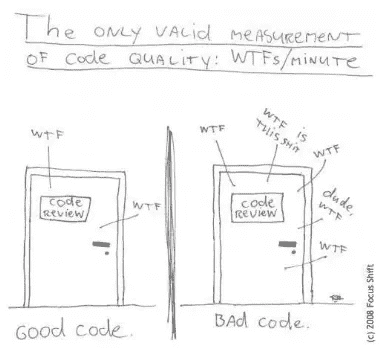 The ONLY VALID MEASUREMENT
OF Code QUALITY: WTFs/MINUTE
WTF
code
REVIEW
WTF
Good code.
WTF
WTF is
THIS SHIT
WTF
code
REVIEW
dude,
WTF
WTF
BAd code.
(c) 2008 Focus Shift